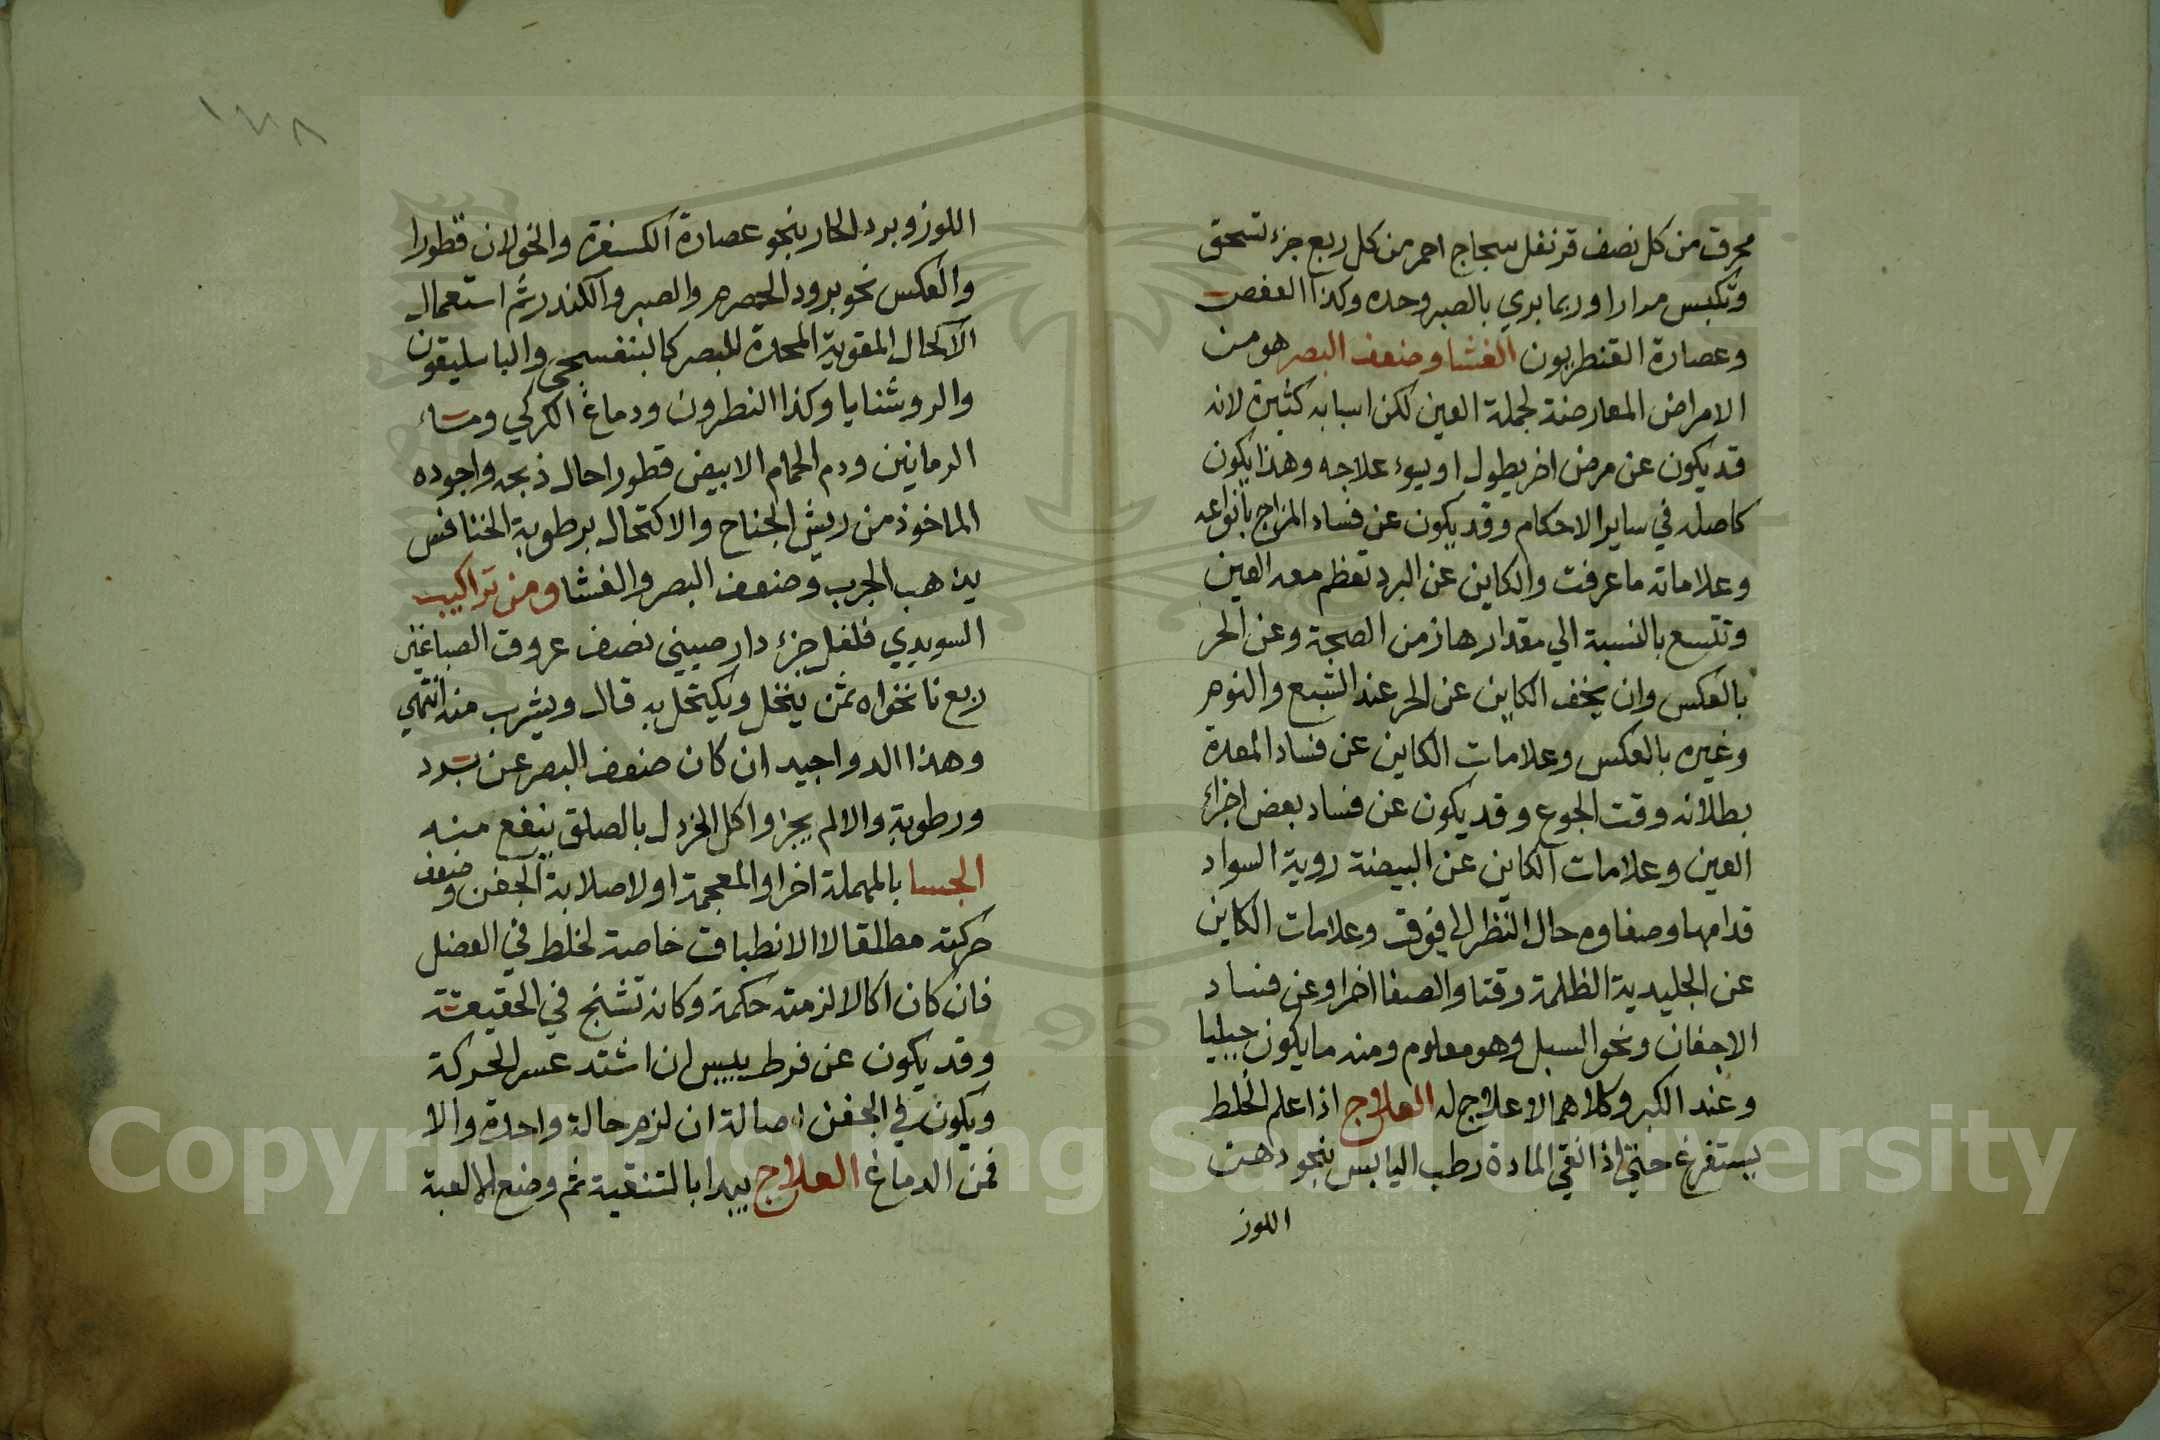 محرق من كل نصف قرنفل سجاج احمر من كل ربع جزء تسحق
وتكبس مرارا وربما بري بالصبر وحده وكذا العفص
وعصارة القنطريون الغشا وضعف البصر هو من
الامراض العارضة لجملة العين لكن اسبابه كثيرة لانه
قد يكون عن مرض اخر يطول او يسوء علاجه وهذا يكون
كاصله في ساير الاحكام وقد يكون عن فساد المزاج بانواعه
وعلاماته ما عرفت والكاين عن البرد تعظم معه العين
وتتسع بالنسبة الي مقدارها زمن الصحة وعن الحر
بالعكس وان يخف الكاين عن الحر عند الشبع والنوم
وغيره بالعكس وعلامات الكاين عن فساد المعدة
بطلانه وقت الجوع وقد يكون عن فساد بعض اجزاء
العين وعلامات الكاين عن البيضة روية السواد
قدامها وصفاوه حال النظر الي فوق وعلامات الكاين
عن الجليدية الظلمة وقتا والصفا اخرا وعن فساد
الاجفان ونحو السبل وهو معلوم ومنه ما يكون جبليا
وعند الكبر وكلاهما لا علاج له العلاج اذا علم الخلط
يستفرغ حتي اذا نقي المادة رطب اليابس بنحو دهن
اللوز
١٧٨
اللوز وبرد الحار بنحو عصارة الكسفرة والخولان قطورا
والعكس نحو برود الحصرم والصبر والكندر ثم استعمال
الاكحال المقوية المحدة للبصر كالبنفسجي والباسليقون
والروشنايا وكذا النطرون ودماغ الكركي وماء
الرمانين ودم الحمام الابيض قطورا حال ذبحه واجوده
الماخوذ من ريش الجناح والاكتحال برطوبة الخنافس
يذهب الجرب وضعف البصر والغشا ومن تراكيب
السويدي فلفل جزء دار صيني نصف عروق الصباغين
ربع نانخواه ثمن ينخل ويكتحل به قال ويشرب منه انتهي
وهذا الدوا جيد ان كان ضعف البصر عن برد
ورطوبة والا لم يجز واكل الخردل بالصلق ينفع منه
الجسا بالمهملة اخرا والمعجمة اولا صلابة الجفن وضعف
حركته مطلقا لا الانطباق خاصة لخلط في العضل
فان كان اكالا لزمته حكة وكانه تشنج في الحقيقة
وقد يكون عن فرط يبس ان اشتد عسر الحركة
ويكون في الجفن اصالة ان لزم حالة واحدة والا
فمن الدماغ العلاج يبدا بالتنقية ثم وضع الالعبة
Copyright © King Saud University
1957